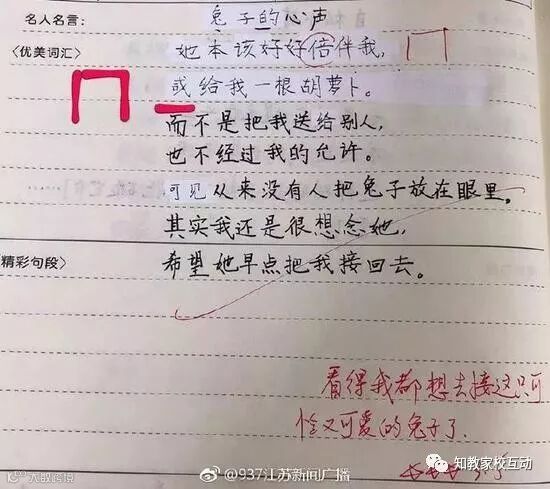 兔子的心声
名人名言：
〈优美词汇〉
她本该好好倍伴我，
或给我一根胡萝卜。
而不是把我送给别人，
也不经过我的允许。
可见从来没有人把兔子放在眼里。
其实我还是很想念她，
精彩句段〉
希望她早点把我接回去。
看得我都想去接这只可
怜又可爱的兔子了.
@937江苏新闻广播
知教家校互动
大数跨境